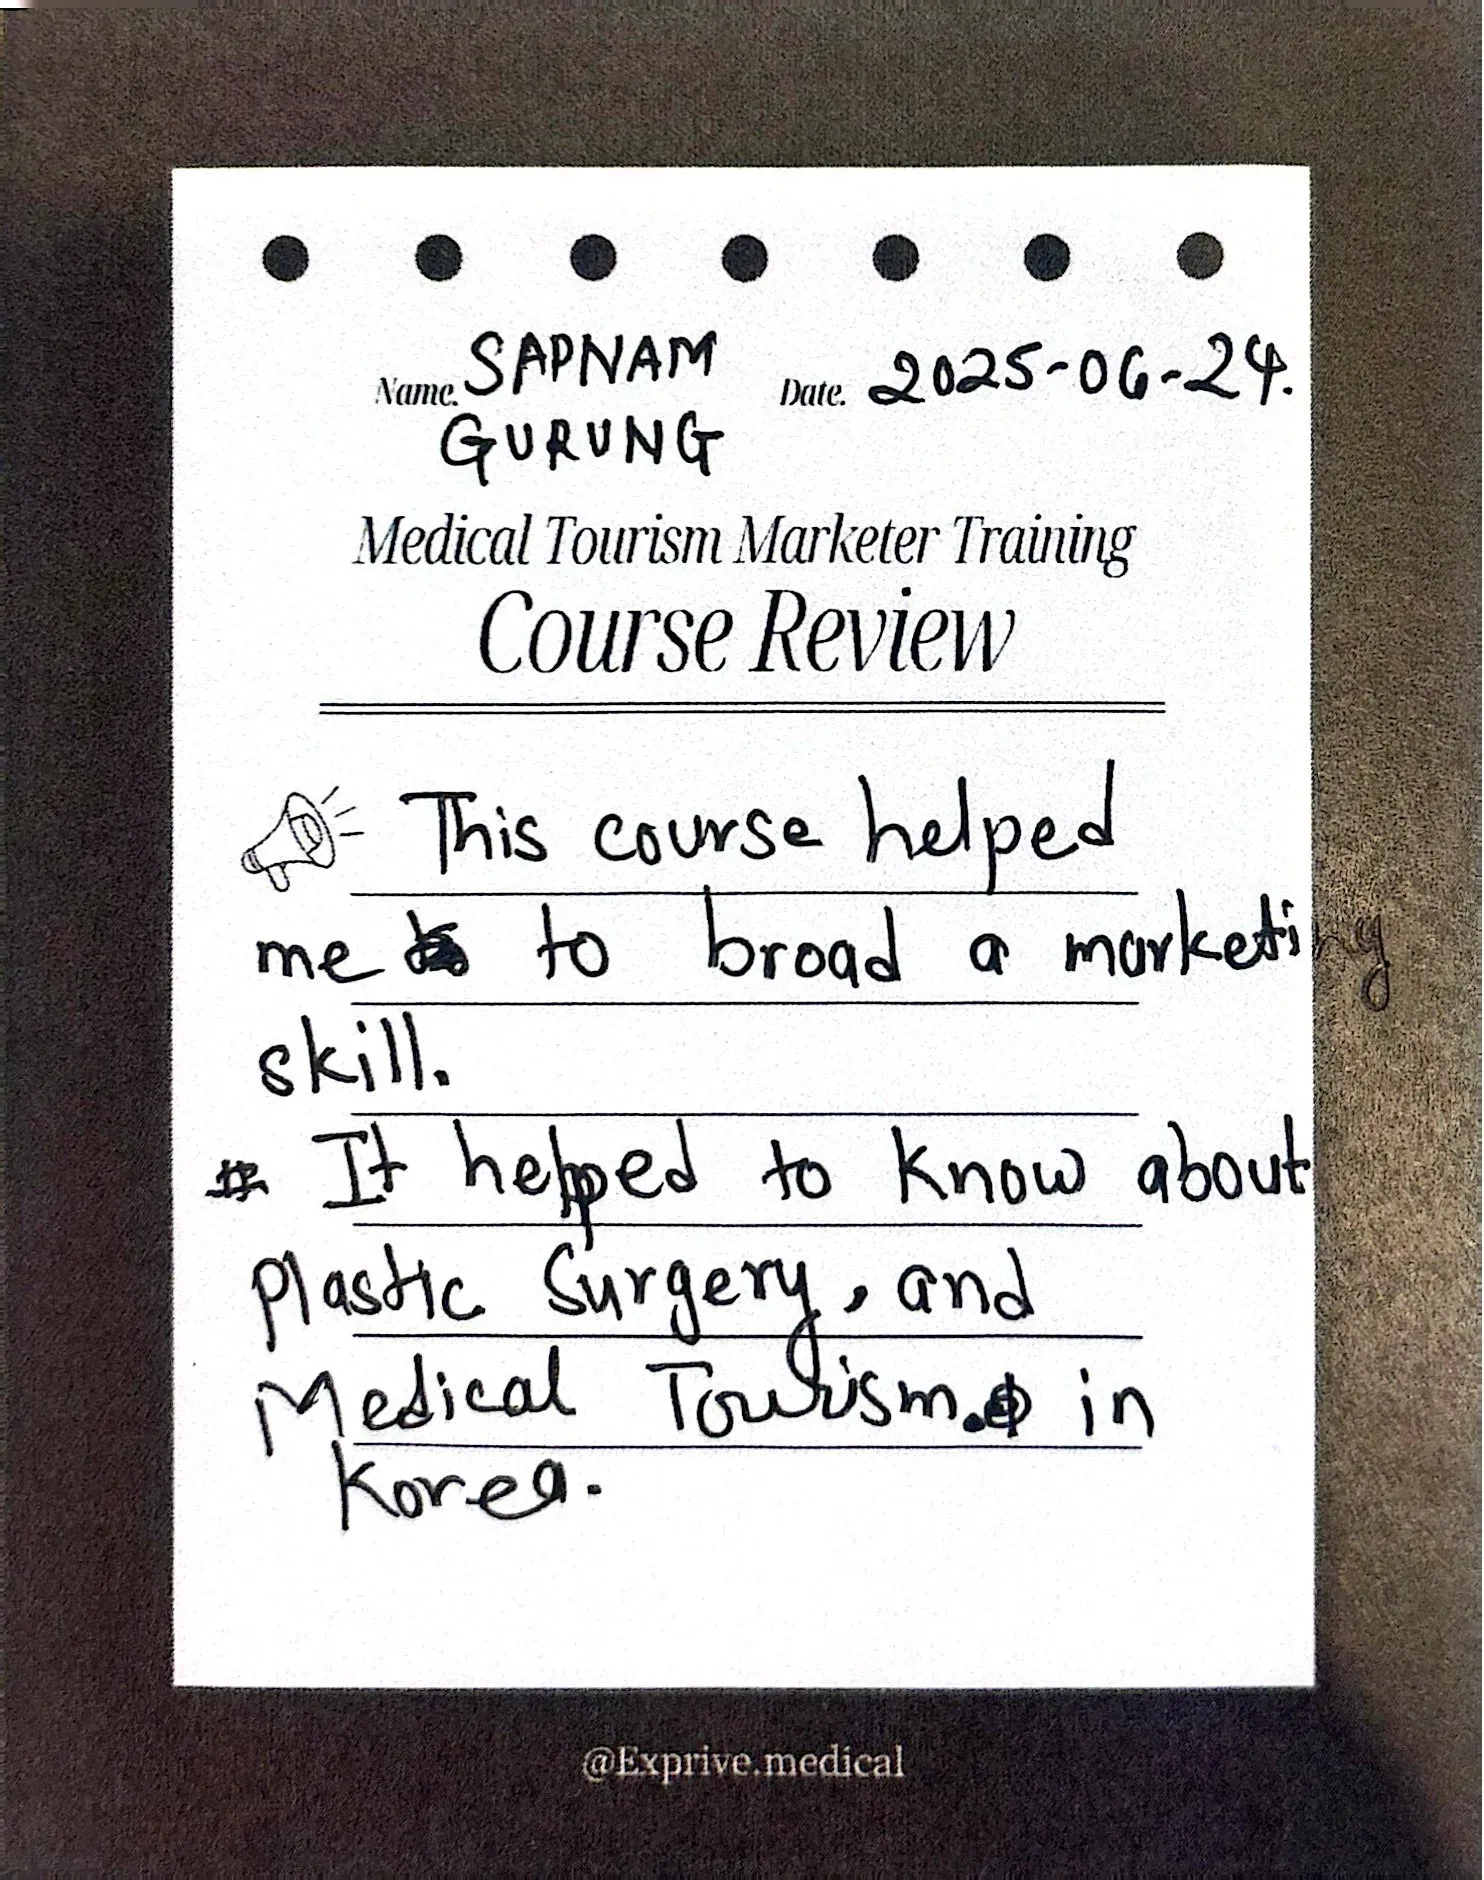 Name. SAPNAM Date. 2025-06-24.
GURUNG
Medical Tourism Marketer Training
Course Review
This course helped
me to broad a marketing
skill.
# It helped to know about
plastic surgery, and
Medical Tourism. in
Korea.
@Exprive.medical